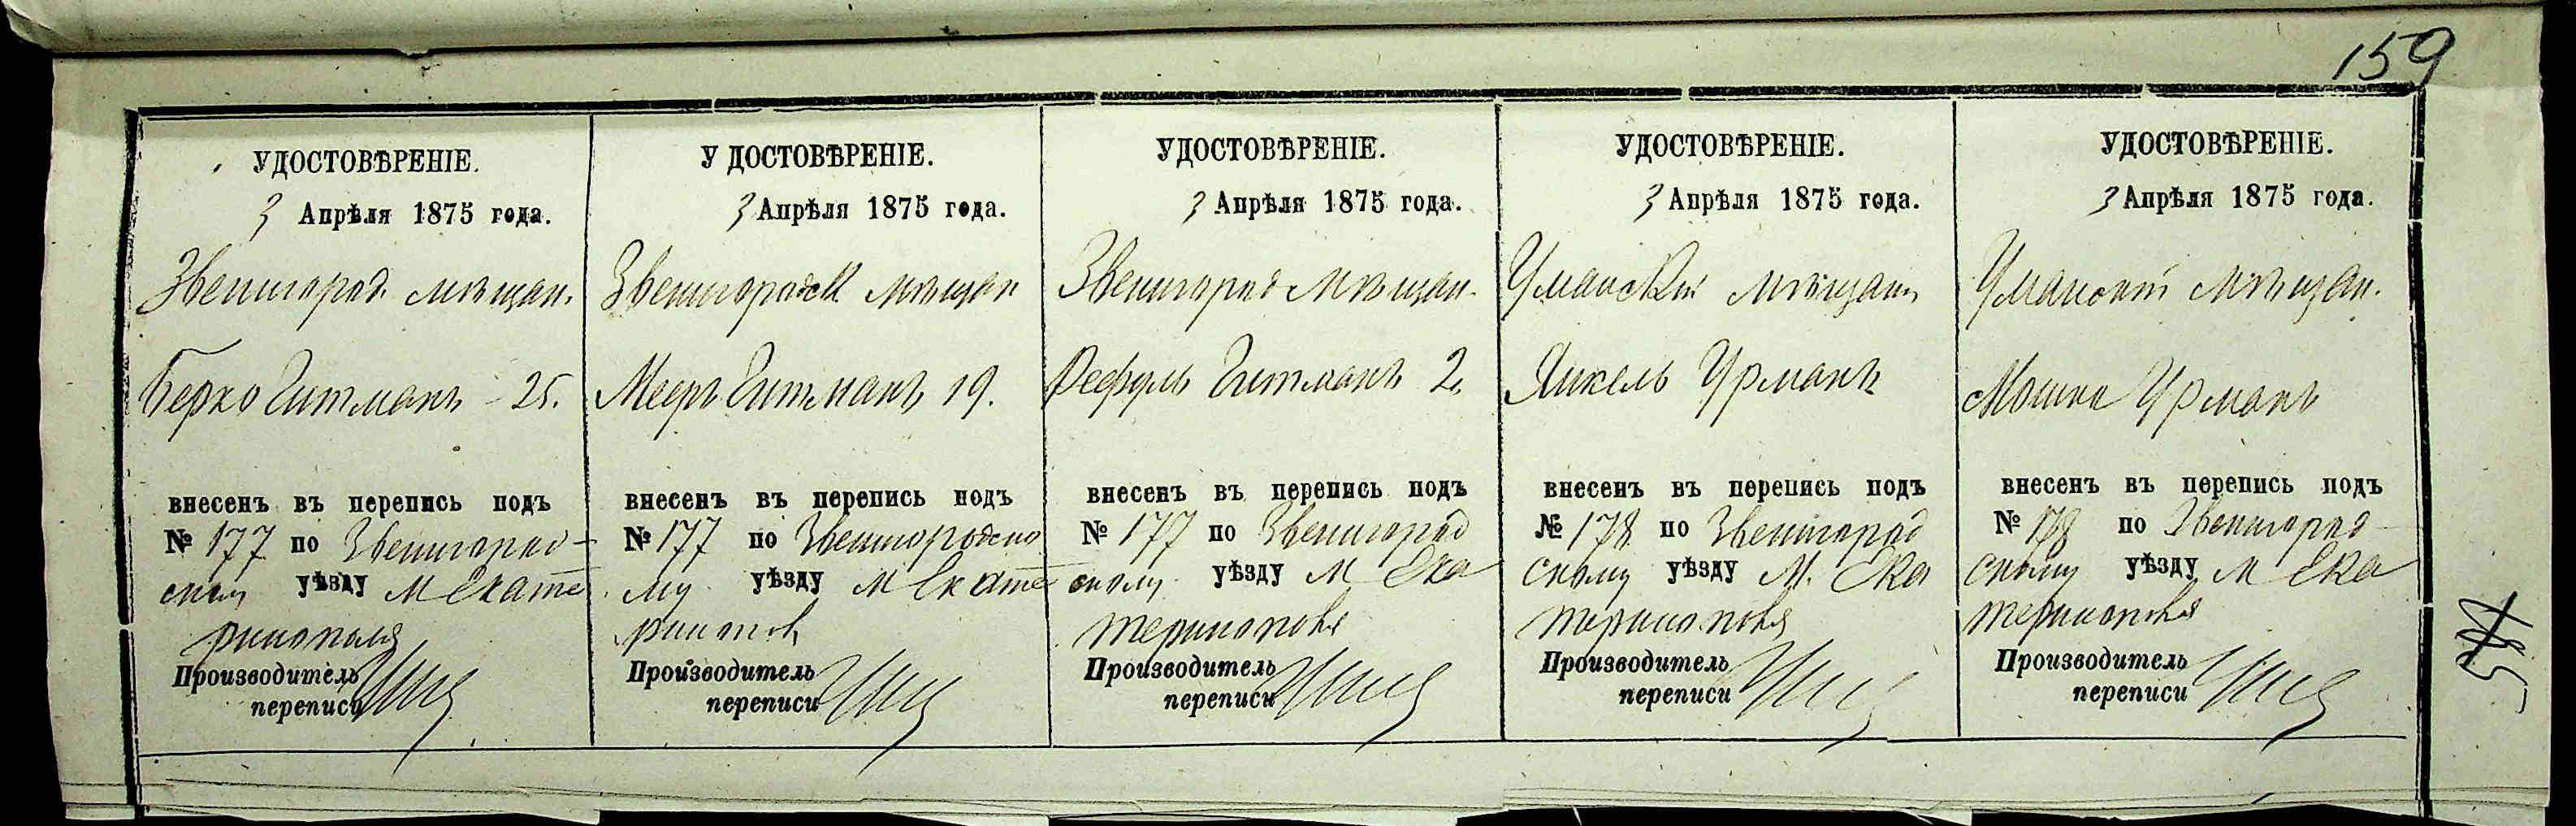 159
УДОСТОВѢРЕНІЕ.
3 Апрѣля 1875 года.
Звенигород. мѣщан.
Берко Гитманъ - 25.
внесенъ въ перепись подъ
№ 177 по Звенигород-
скому уѣзду М Екате
ринополя
Производитель
переписи
УДОСТОВѢРЕНІЕ.
3 Апрѣля 1875 года.
Звенигородск мѣщан
Мееръ Гитманъ 19.
внесенъ въ перепись подъ
№ 177 по Звенигородско
му уѣзду М Екате
риноп
Производитель
переписи
УДОСТОВѢРЕНІЕ.
3 Апрѣля 1875 года.
Звенигород мѣщан.
Гитманъ 2.
внесенъ въ перепись подъ
№ 177 по Звенигород
скому уѣзду М Ека
теринополя
Производитель
переписи
УДОСТОВѢРЕНІЕ.
3 Апрѣля 1875 года.
Уманскій мѣщан
Янкель Урманъ
внесенъ въ перепись подъ
№ 178 по Звенигород
скому уѣзду М. Ека
теринополя
Производитель
переписи
УДОСТОВѢРЕНІЕ.
3 Апрѣля 1875 года.
Уманскій мѣщан.
Мошко Урманъ
внесенъ въ перепись подъ
№ 178 по Звенигород
скому уѣзду М Ека
теринополя
Производитель
переписи